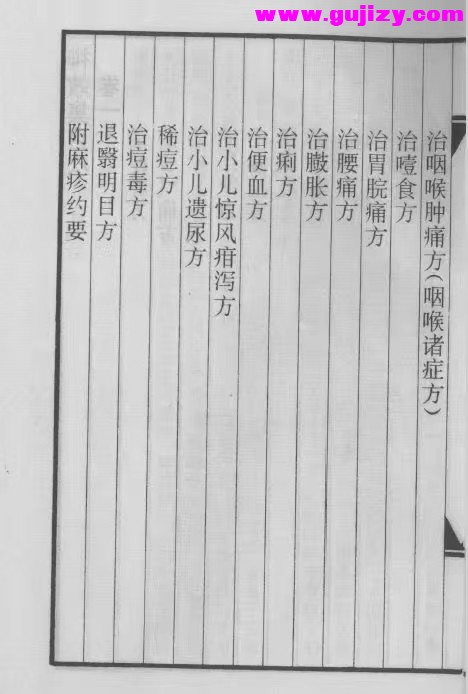 www.gujizy.com
治咽喉肿痛方(咽喉诸症方)
治噎食方
治胃脘痛方
治腰痛方
治臌胀方
治痢方
治便血方
治小儿惊风疳泻方
治小儿遗尿方
稀痘方
治痘毒方
退翳明目方
附麻疹约要